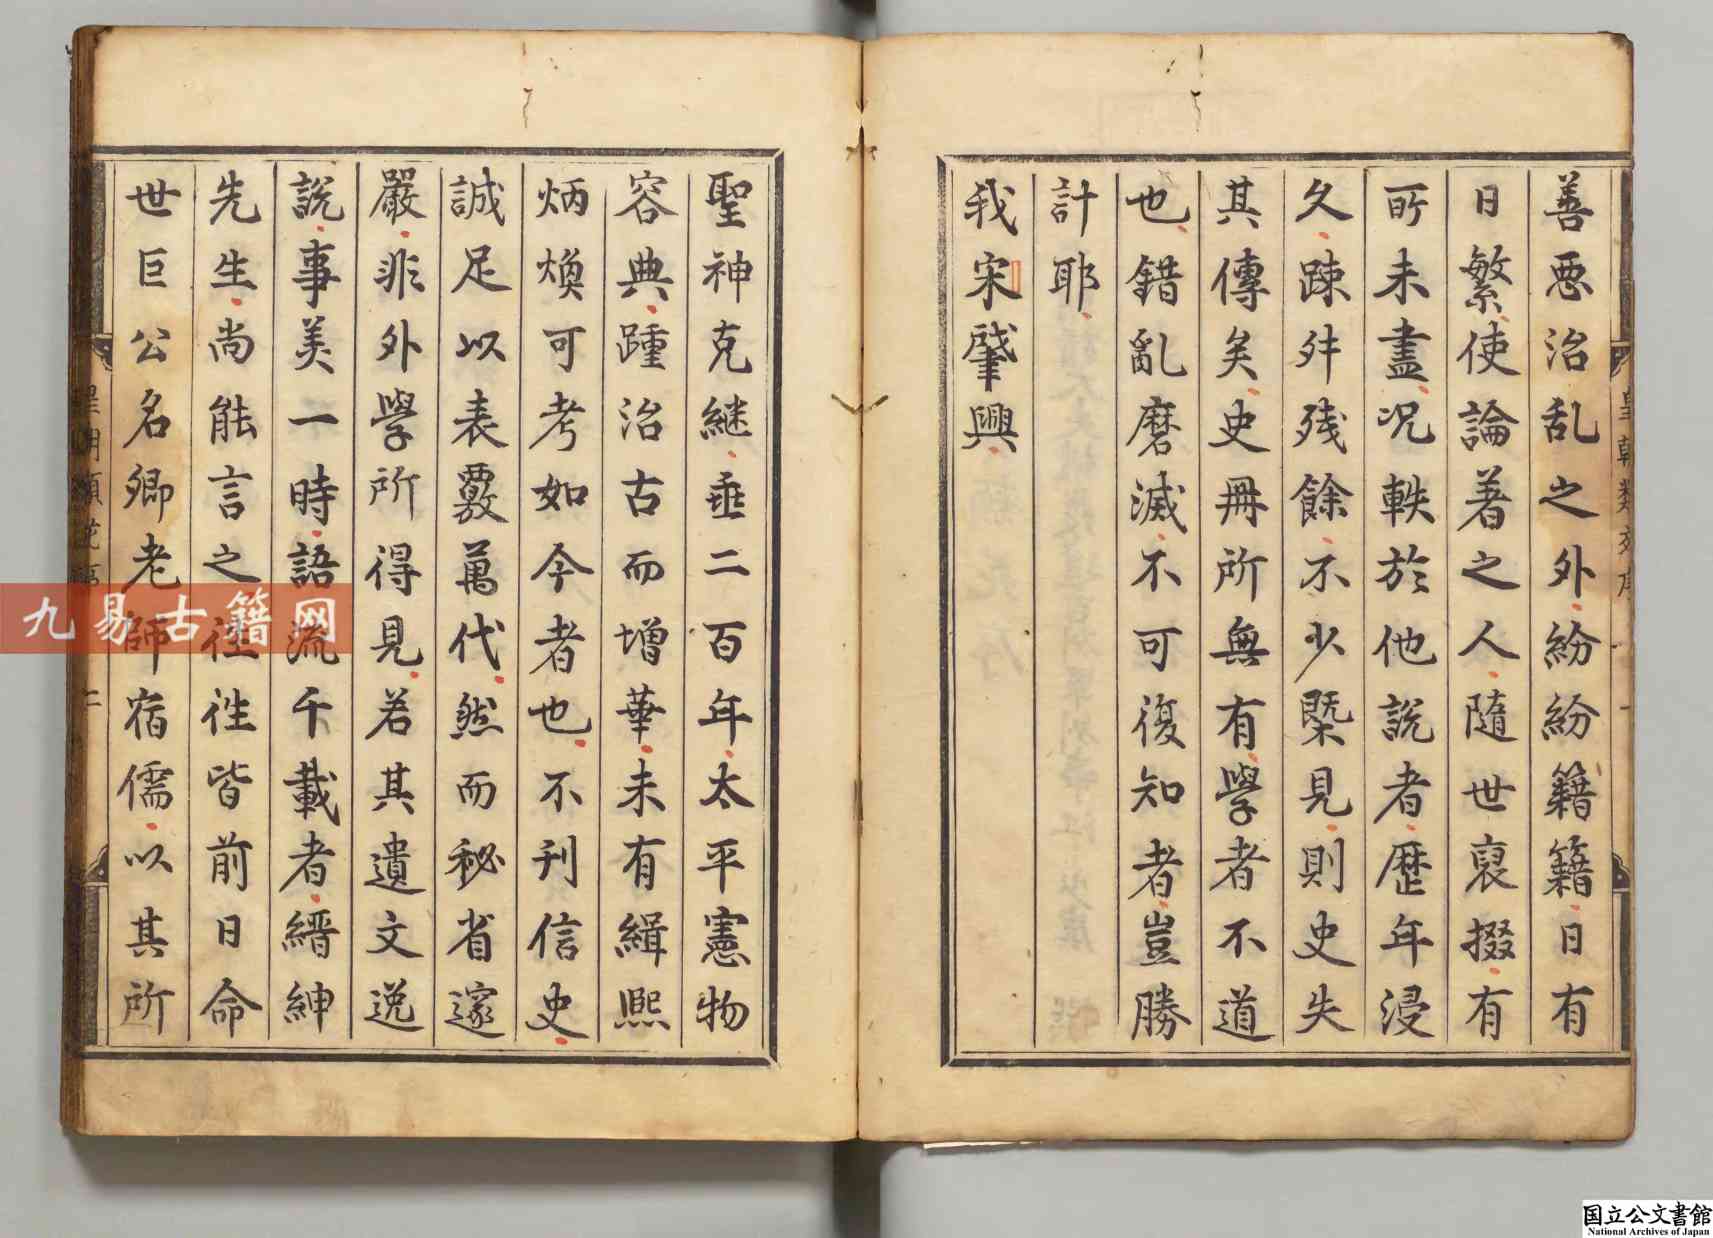 善惡治乱之外紛紛籍籍日有
日繁使論著之人隨世裒掇有
所未盡况軼於他說者歷年浸
久踈舛残餘不少槩見則史失
其傳矣史冊所無有學者不道
也錯亂磨滅不可復知者豈勝
計耶
我宋肇興
聖神克継垂二百年太平憲物
容典踵治古而增華未有緝熙
炳煥可考如今者也不刊信史
誠足以表覈萬代然而秘省邃
嚴非外學所得見若其遺文逸
說事美一時語流千載者縉紳
先生尚能言之往往皆前日命
世巨公名卿老師宿儒以其所
九易古籍网
国立公文書館
National Archives of Japan